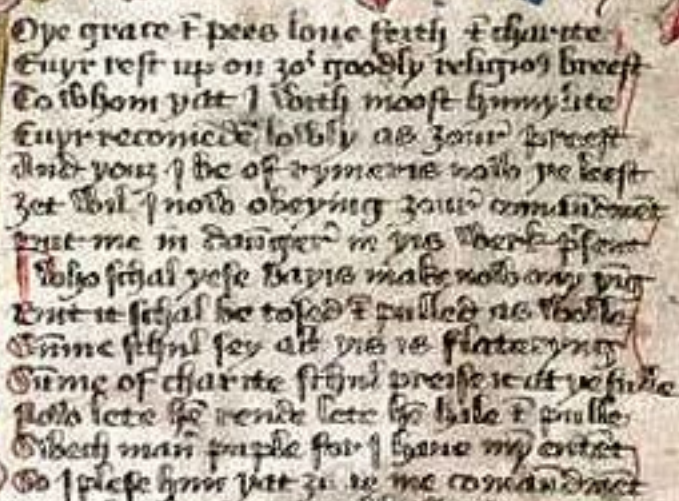 Oye grace & pees loue feith & charite
Euyr rest up on ȝoʳ goodly religioꝰ breest
To whom yat I with moost humylite
Euyr recomēde lowly as ȝour preest
And youȝ I be of rymeris now ye leest
Ȝet wil I now obeying ȝour comaūdmēt
Put me in daūger in yis werk pͥsent
Who schal yese dayis make now ony yīg
But it schal be tosed & pulled as wolle
Summe schul sey al yis is flateryng
Sūme of charite schul preise it at ye fulle
Now lete hē rende lete hē hale & pulle
Swech maū puple for I haue myn entēt
So I plese hym yat ȝu to me comaūdmēt